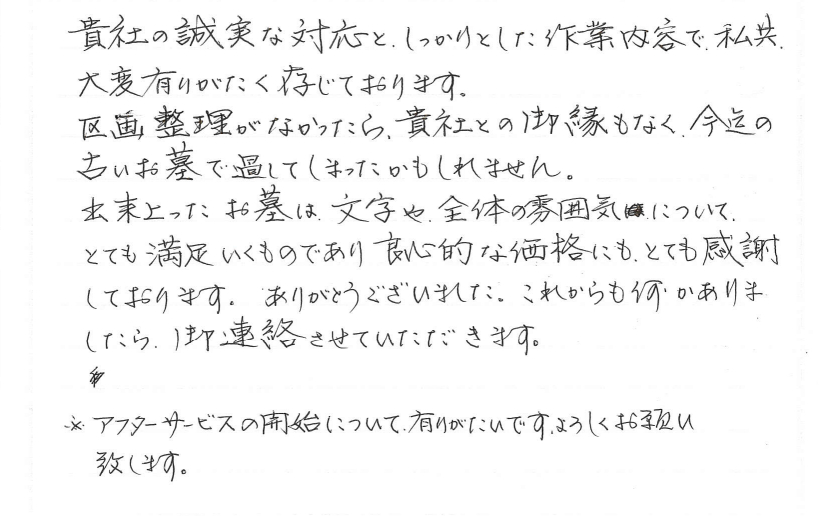 貴社の誠実な対応と、しっかりとした作業内容で、私共、
大変有りがたく存じております。
区画整理がなかったら、貴社との御縁もなく、今迄の
古いお墓で過してしまったかもしれません。
出来上ったお墓は、文字や、全体の雰囲気について、
とても満足いくものであり良心的な価格にも、とても感謝
しております。ありがとうございました。これからも何かありま
したら、御連絡させていただきます。
※アフターサービスの開始について、有りがたいです。よろしくお願い
致します。